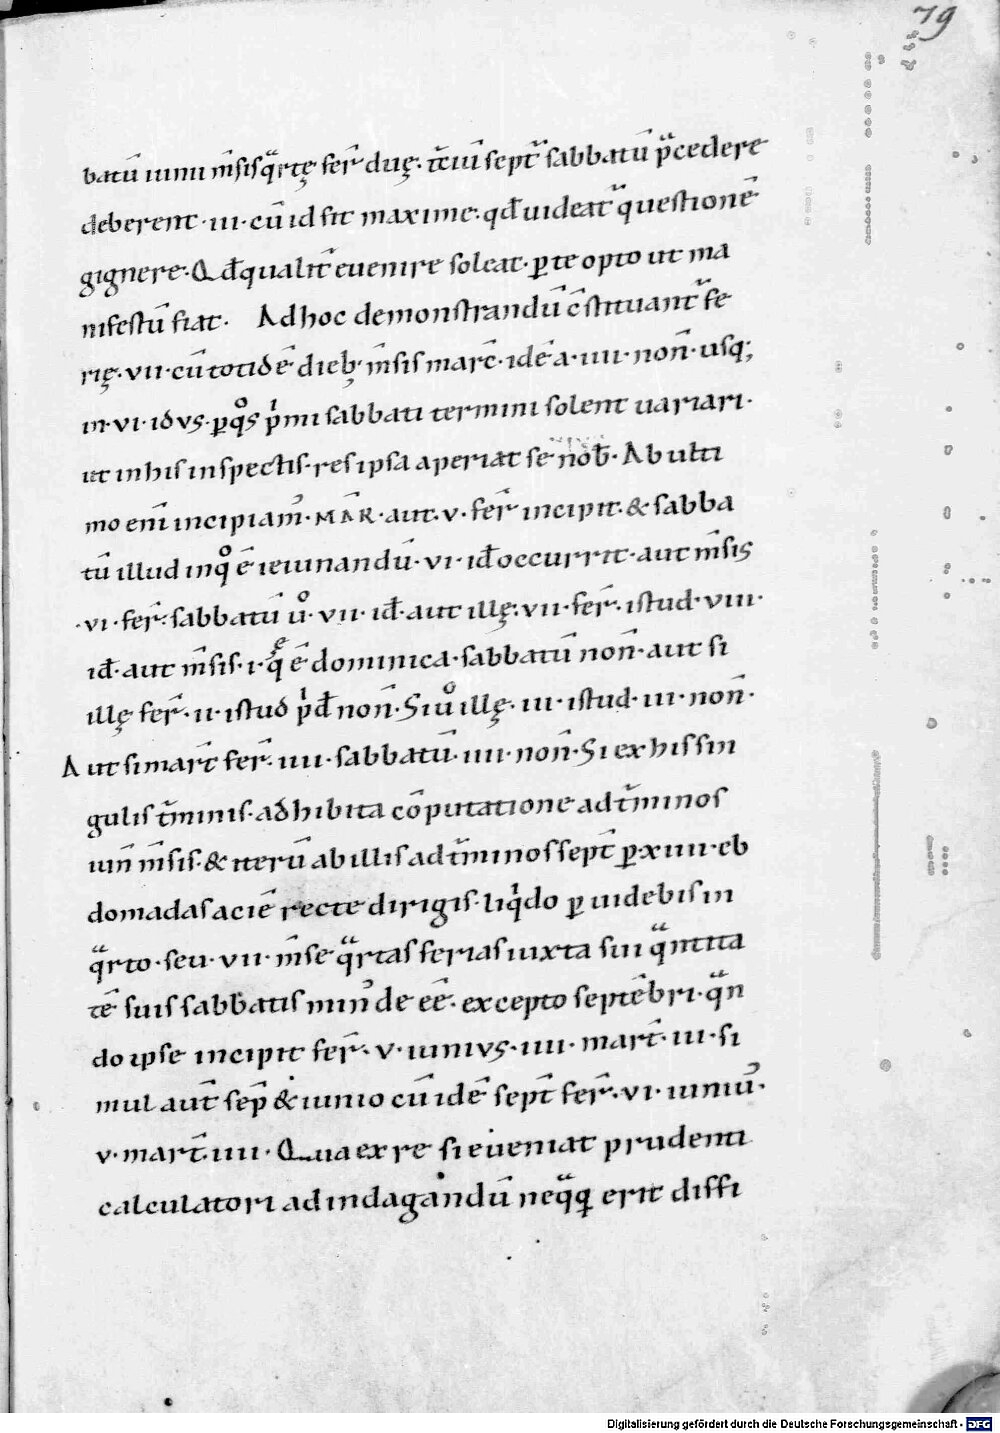 79
batū iunii m̄sis qͣrtę fer̄ duę· t̄ciū sept̄ sabbatū p̄cedere
deberent· iii· cū id sit maxime· qđ uideat̄ qͣuestionē
gignere· Qđ qualit̄ euenire soleat· ꝑ te opto ut ma
nifestū fiat· Ad hoc demonstrandū c̄stituant̄ fe
rię· vii· cū totidē dieb; m̄sis marc̄· idē a· iiii· non̄· usq;
in· vi· idvs· ꝑ qͦs pͥmi sabbati termini solent uariari·
ut in his inspectis· res ipsa aperiat se nob̄· Ab ulti
mo enī incipiam̄· MAR̄· aut· v· fer̄ incipit· & sabba
tū illud in qͦ ē ieiunandū· vi· iđ occurrit· aut m̄sis
·vi· fer̄· sabbatū uͦ· vii· iđ· aut illę· vii· fer̄· istud· viii·
iđ· aut m̄sis· i· qͣ ē dominica· sabbatū non̄· aut si
illę fer̄· ii· istud pͥđ non̄· Si uͦ illę· iii· istud· iii· non̄·
Aut si mart̄ fer̄· iiii· sabbatū· iiii· non̄· Si ex his sin
gulis t̄minis· adhibita cōputatione ad t̄minos
iun̄ m̄sis· & iterū ab illis ad t̄minos sept̄ ꝑ· xiiii· eb
domadas aciē recte dirigis· liqͥdo ꝑuidebis in
qͣrto· seu· vii· m̄se qͣrtas ferias iuxta sui qͣntita
tē suis sabbatis min̄ de eē· excepto septēbri· qͣn
do ipse incipit fer̄· v· iunivs· iiii· mart̄· iii· si
mul aut̄ sep̄ & iunio cū idē sept̄ fer̄· vi· iuniū·
v· mart̄· iiii· Qua ex re si eueniat prudenti
calculatori ad indagandū neqͣqͣ erit diffi
Digitalisierung gefördert durch die Deutsche Forschungsgemeinschaft - DFG